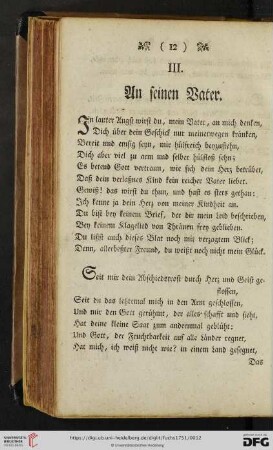 ( 12 )
III.
An seinen Vater.
In lauter Angst wirst du, mein Vater, an mich denken,
Dich über dein Geschick nur meinetwegen kränken,
Bereit und emsig seyn, mir hülfreich beyzustehn,
Dich aber viel zu arm und selber hülflos sehn;
Es betend Gott vertraun, wie sich dein Herz betrübet,
Daß dein verlaßnes Kind kein reicher Vater liebet.
Gewiß! das wirst du thun, und hast es stets gethan:
Ich kenne ja dein Herz von meiner Kindheit an.
Du bist bey keinem Brief, der dir mein Leid beschrieben,
Bey keinem Klagelied von Thränen frey geblieben.
Du liesst auch dieses Blat noch mit verzagtem Blick;
Denn, allerbester Freund, du weißt noch nicht mein Glück.
Seit mir dein Abschiedskuß durch Herz und Geist geflossen,
Seit du das letztemal mich in den Arm geschlossen,
Und mir den Gott gerühmt, der alles schafft und sieht,
Hat deine kleine Saat zum andernmal geblüht:
Und Gott, der Fruchtbarkeit auf alle Länder regnet,
Hat mich, ich weiß nicht wie? in einem Land gesegnet,
Das
UNIVERSITÄTS-BIBLIOTHEK HEIDELBERG
https://digi.ub.uni-heidelberg.de/diglit/fuchs1751/0012
© Universitätsbibliothek Heidelberg
gefördert durch
DFG